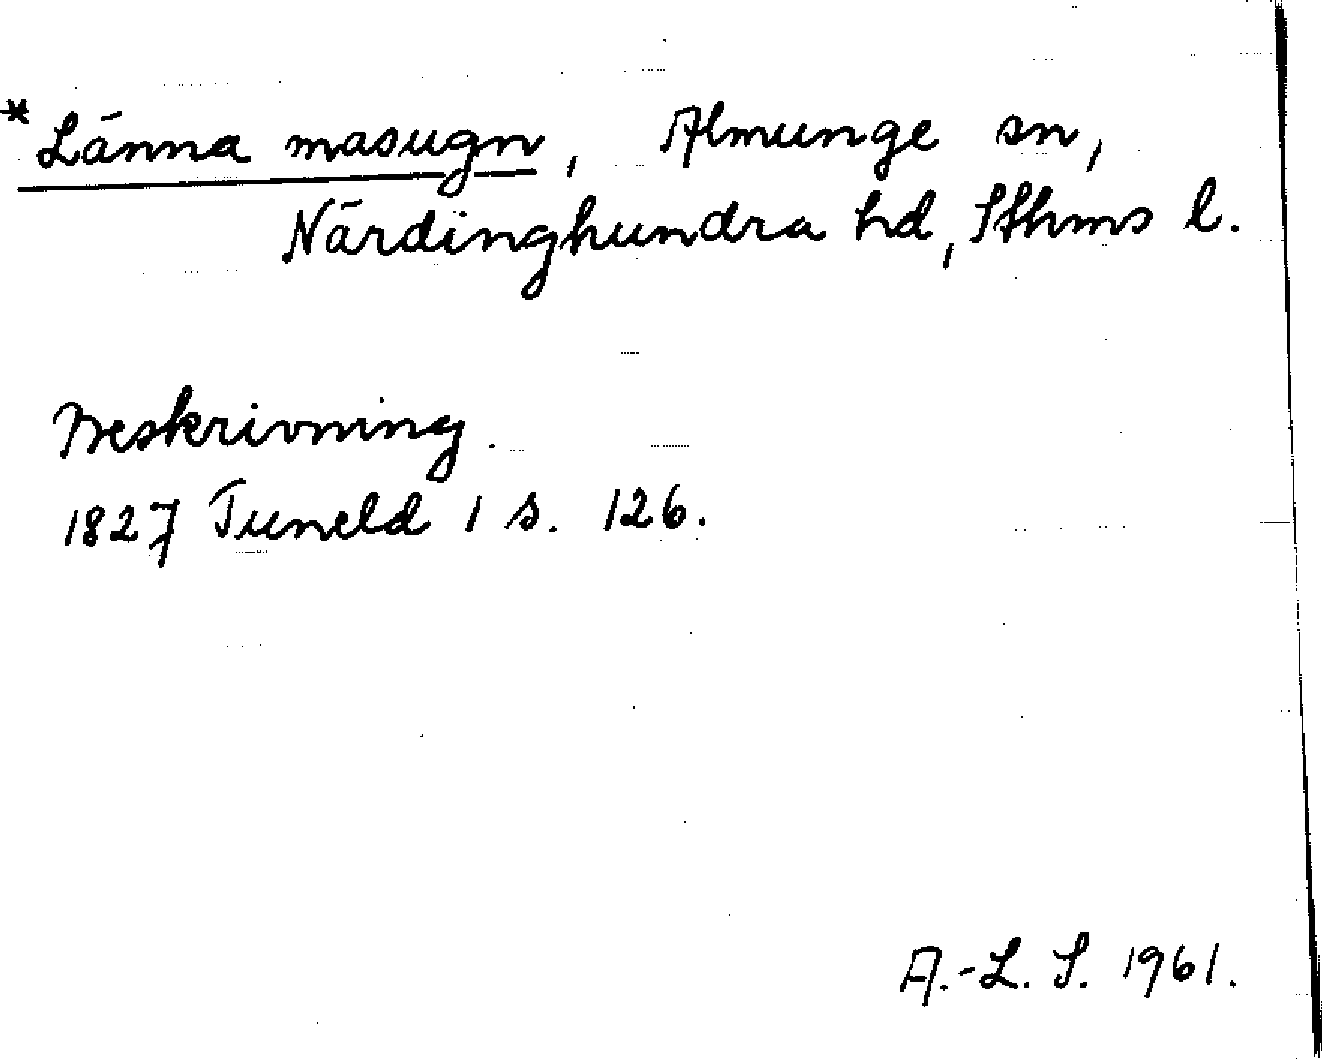 * Länna masugn, Almunge sn,
Närdinghundra hd, Sthms l.
Beskrivning.
1827 Tuneld 1 s. 126.
A.-L. S. 1961.